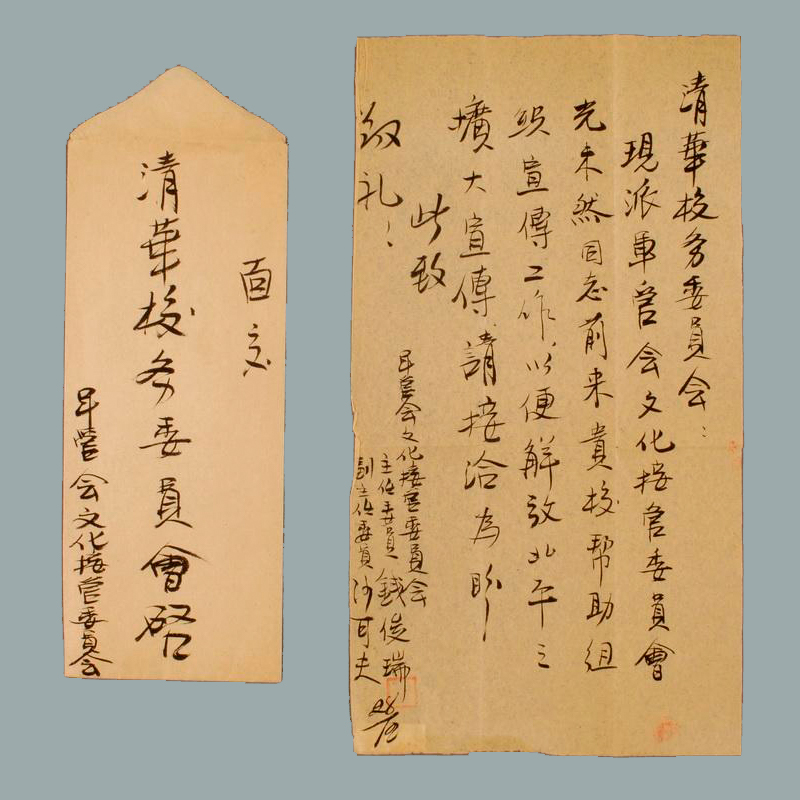 面交
清華校务委員會啓
軍管会文化接管委員会
清華校务委員会：
現派軍管会文化接管委員會
光未然同志前来貴校帮助組
织宣傳工作，以便解放北平三
擴大宣傳，請接洽為盼
此致
敬礼！
軍管会文化接管委員会
主任委員 錢俊瑞
副主任委員 沙可夫